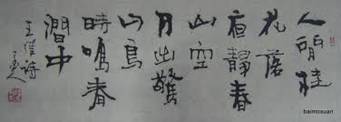 人閒桂
花落
夜靜春
山空
月出驚
山鳥
時鳴春
澗中
王維詩